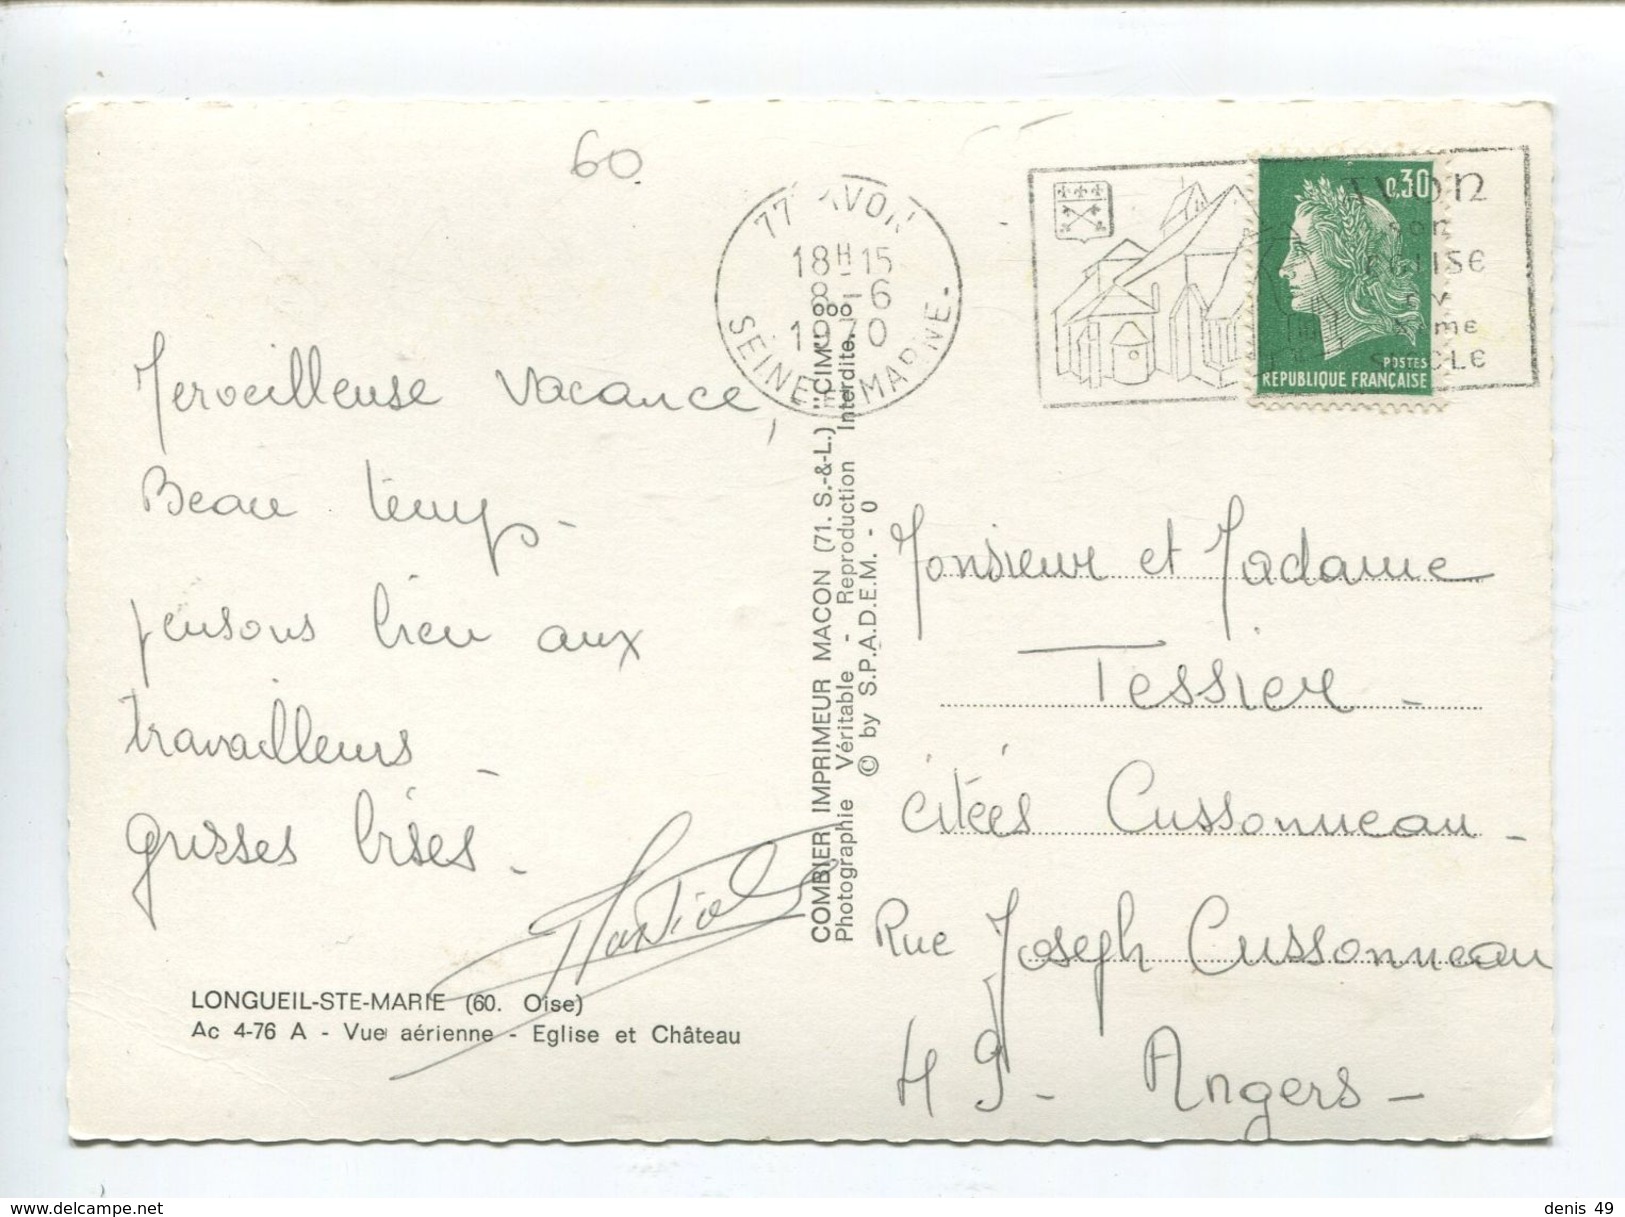 60
77 AVON
18H15
8-6
1970
SEINE-ET-MARNE
AVON
son
EGLISE
DU
XIeme
SIECLE
0,30
POSTES
REPUBLIQUE FRANÇAISE
Merveilleuse vacance,
Beau temps -
pensons bien aux
travailleurs -
grosses bises -
Martial
LONGUEIL-STE-MARIE (60. Oise)
Ac 4-76 A - Vue aérienne - Eglise et Château
COMBIER IMPRIMEUR MACON (71. S.-&-L.) "CIM"
Photographie Véritable - Reproduction Interdite.
© by S.P.A.D.E.M. - 0
Monsieur et Madame
Tessier -
citées Cussonneau -
Rue Joseph Cussonneau
49 - Angers -
denis 49